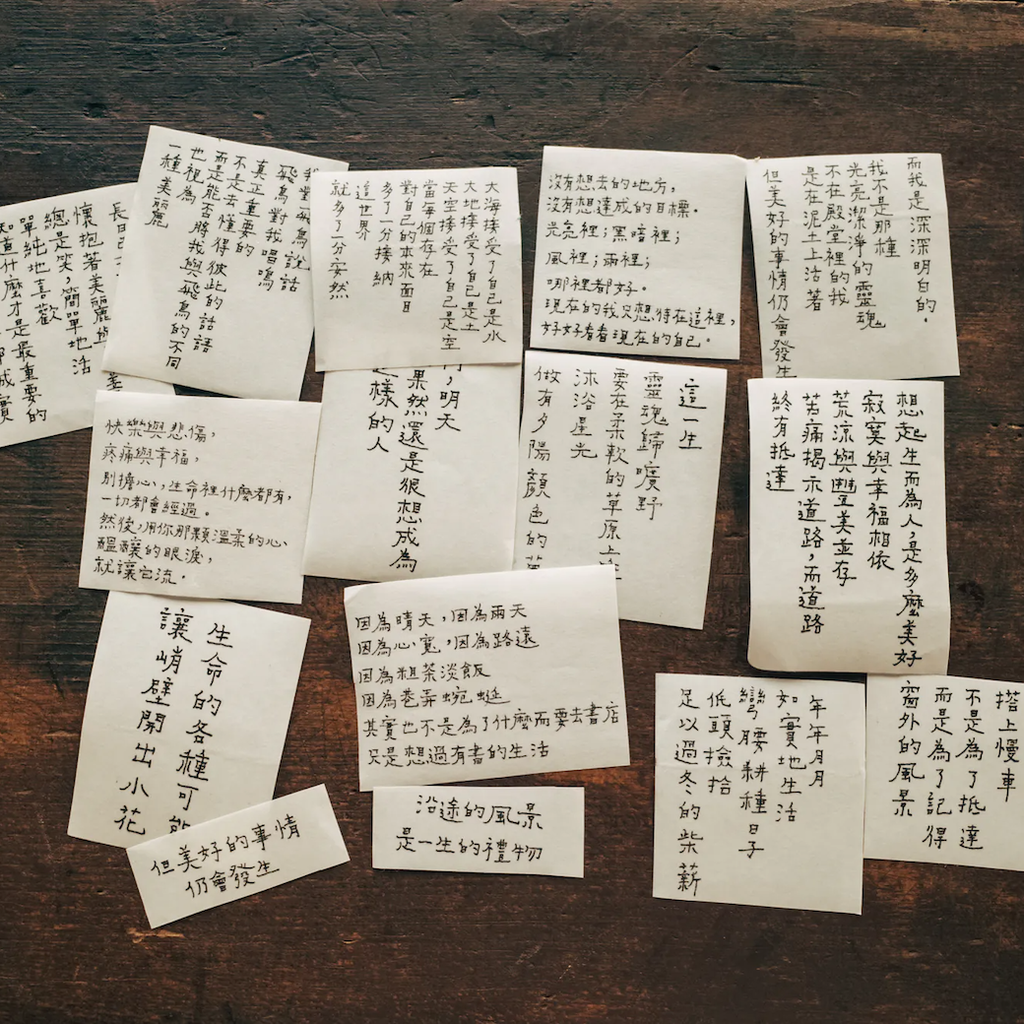 懷抱著美麗與
總是笑，簡單地活
單純地喜歡
知道什麼才是最重要的
我對飛鳥說話
飛鳥對我唱鳴
真正重要的
不是去懂得彼此的話語
而是能否將我與飛鳥的不同
也視為
一種美麗
大海接受了自己是水
大地接受了自己是土
天空接受了自己是空
當每個存在
對自己的本來面目
多了一分接納
這世界
就多了一分安然
沒有想去的地方，
沒有想達成的目標。
光亮裡；黑暗裡；
風裡；雨裡；
哪裡都好。
現在的我只想待在這裡，
好好看看現在的自己。
而我是深深明白的。
我不是那種
光亮潔淨的靈魂
不在殿堂裡的我
是在泥土上活著
但美好的事情仍會發生
快樂與悲傷，
疼痛與幸福，
別擔心，生命裡什麼都有，
一切都會經過。
然後，用你那顆溫柔的心
醞釀的眼淚，
就讓它流。
明天
果然還是很想成為
這樣的人
這一生
靈魂歸曠野
要在柔軟的草原上
沐浴星光
做有夕陽顏色的
想起生而為人，是多麼美好
寂寞與幸福相依
荒涼與豐美並存
苦痛揭示道路，而道路
終有抵達
生命的各種可能
讓峭壁開出小花
因為晴天，因為雨天
因為心寬，因為路遠
因為粗茶淡飯
因為巷弄蜿蜒
其實也不是為了什麼而要去書店
只是想過有書的生活
年年月月
如實地生活
彎腰耕種日子
低頭撿拾
足以過冬的柴薪
搭上慢車
不是為了抵達
而是為了記得
窗外的風景
但美好的事情
仍會發生
沿途的風景
是一生的禮物